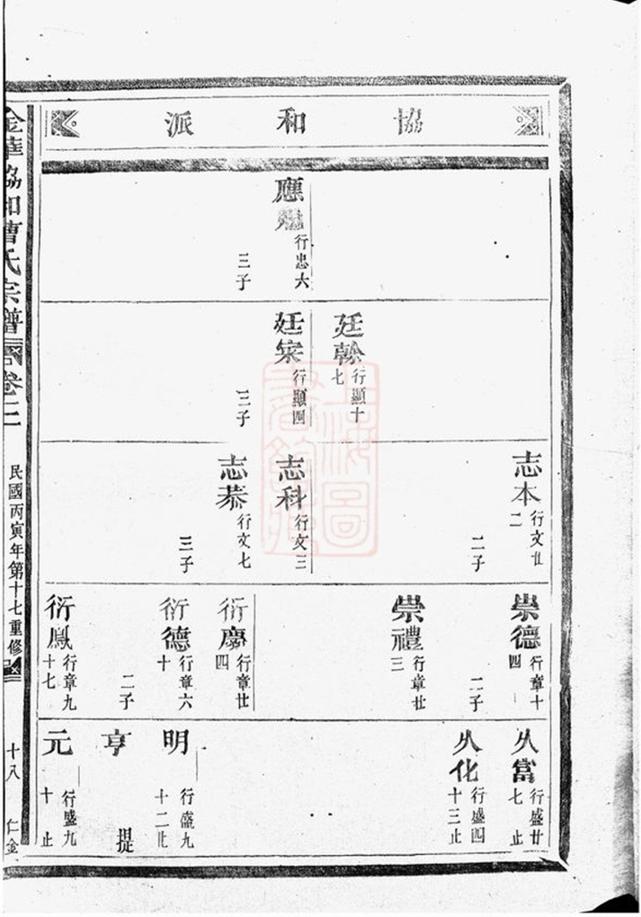 協和派
應
行忠六
三子
廷榦
行顯十七
廷寀
行顯四
三子
志本
行文廿二
二子
志科
行文三
志恭
行文七
三子
崇德
行章十四
二子
崇禮
行章廿三
衍慶
行章廿四
衍德
行章六十
二子
衍鳳
行章九十七
久富
行盛廿七止
久化
行盛四十三止
明
行盛九十二止
亨
提
元
行盛九十止
金華協和曹氏宗譜
卷二
民國丙寅年第十七重修
十八
仁金